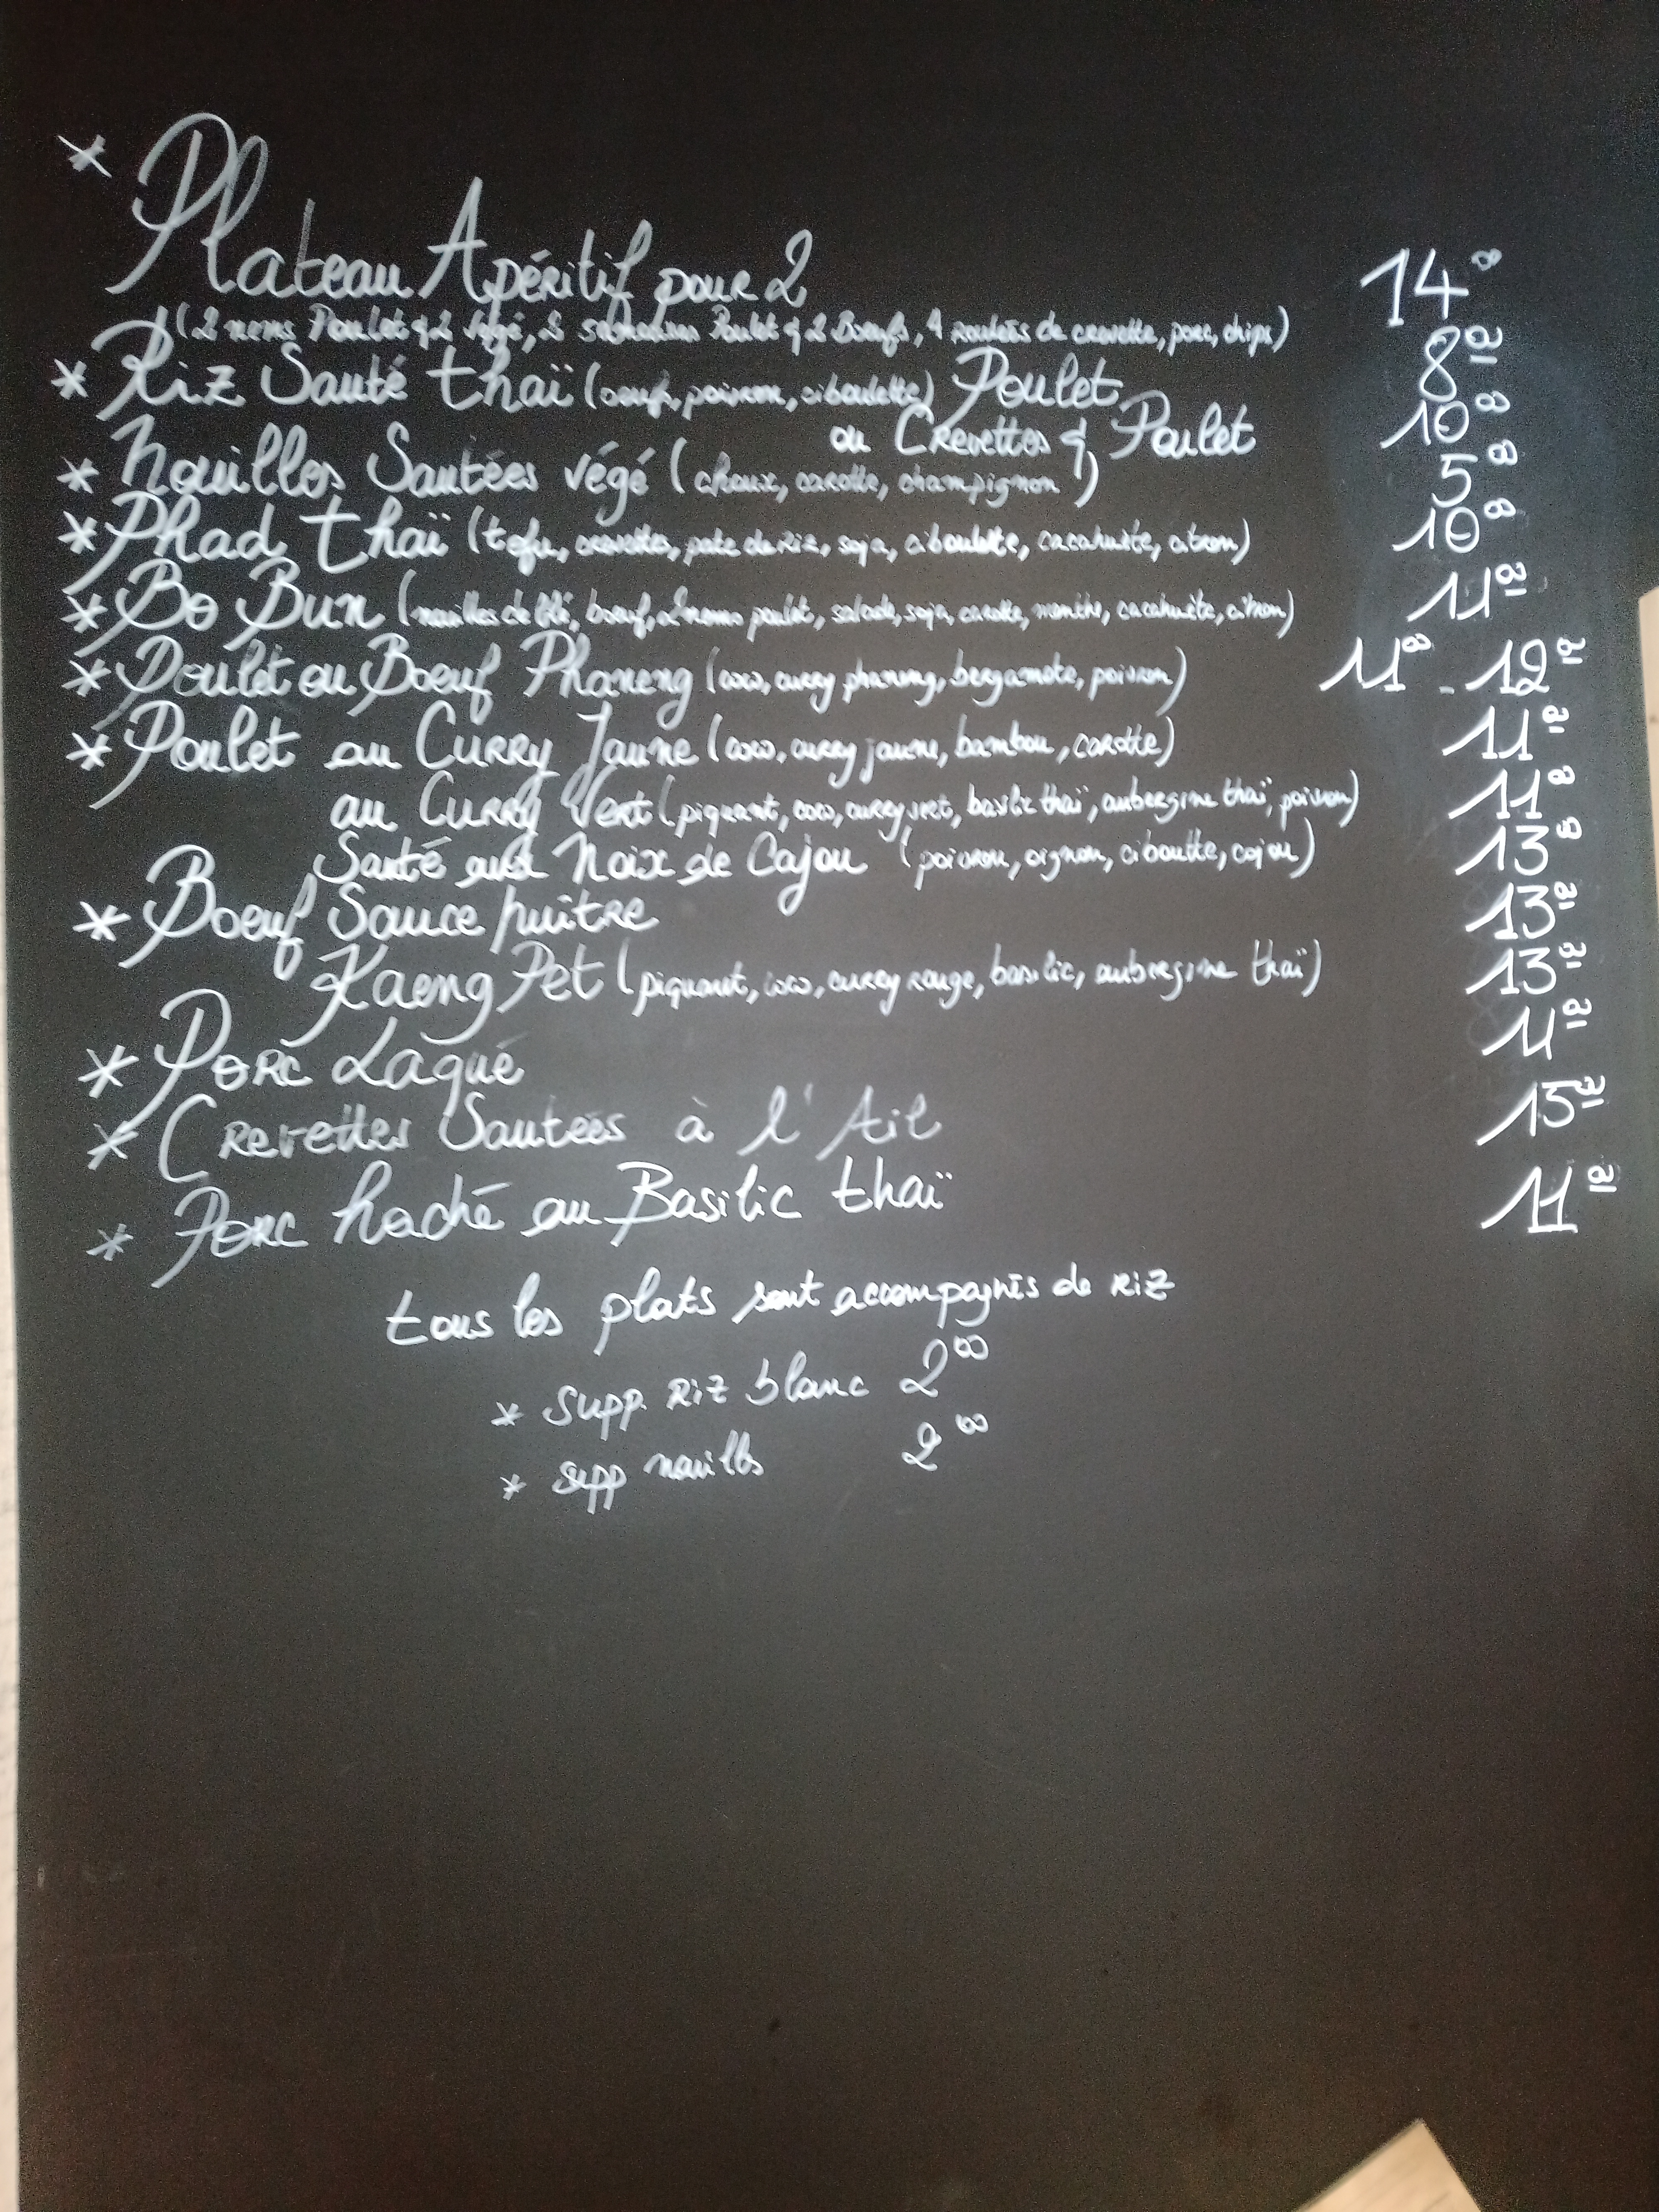 * Plateau Apéritif pour 2 14 00
(2 nems Poulet & 2 Végé, 2 samoussas Poulet & 2 Boeufs, 4 roulés de crevette, porc, chips)
* Riz Sauté thaï (oeuf, poivron, ciboulette) Poulet 8 00
ou Crevettes & Poulet 10 00
* Nouilles Sautées végé (choux, carotte, champignon) 5 00
* Phad thaï (tofu, crevettes, pate de riz, soja, ciboulette, cacahuète, citron) 10 00
* Bo Bun (nouilles de blé, boeuf, 2 nems poulet, salade, soja, carotte, menthe, cacahuète, citron) 11 00
* Poulet ou Boeuf Phaneng (coco, curry phaneng, bergamote, poivron) 11 00 - 12 00
* Poulet au Curry Jaune (coco, curry jaune, bambou, carotte) 11 00
au Curry Vert (piquant, coco, curry vert, basilic thaï, aubergine thaï, poivron) 11 00
Sauté aux Noix de Cajou (poivron, oignon, ciboutte, cajou) 13 00
* Boeuf Sauce huître 13 00
Kaeng Pet (piquant, coco, curry rouge, basilic, aubergine thaï) 13 00
* Porc Laqué 11 00
* Crevettes Sautées à l'Ail 15 00
* Porc haché au Basilic thaï 11 00
tous les plats sont accompagnés de riz
* Supp. Riz blanc 2 00
* Supp nouilles 2 00